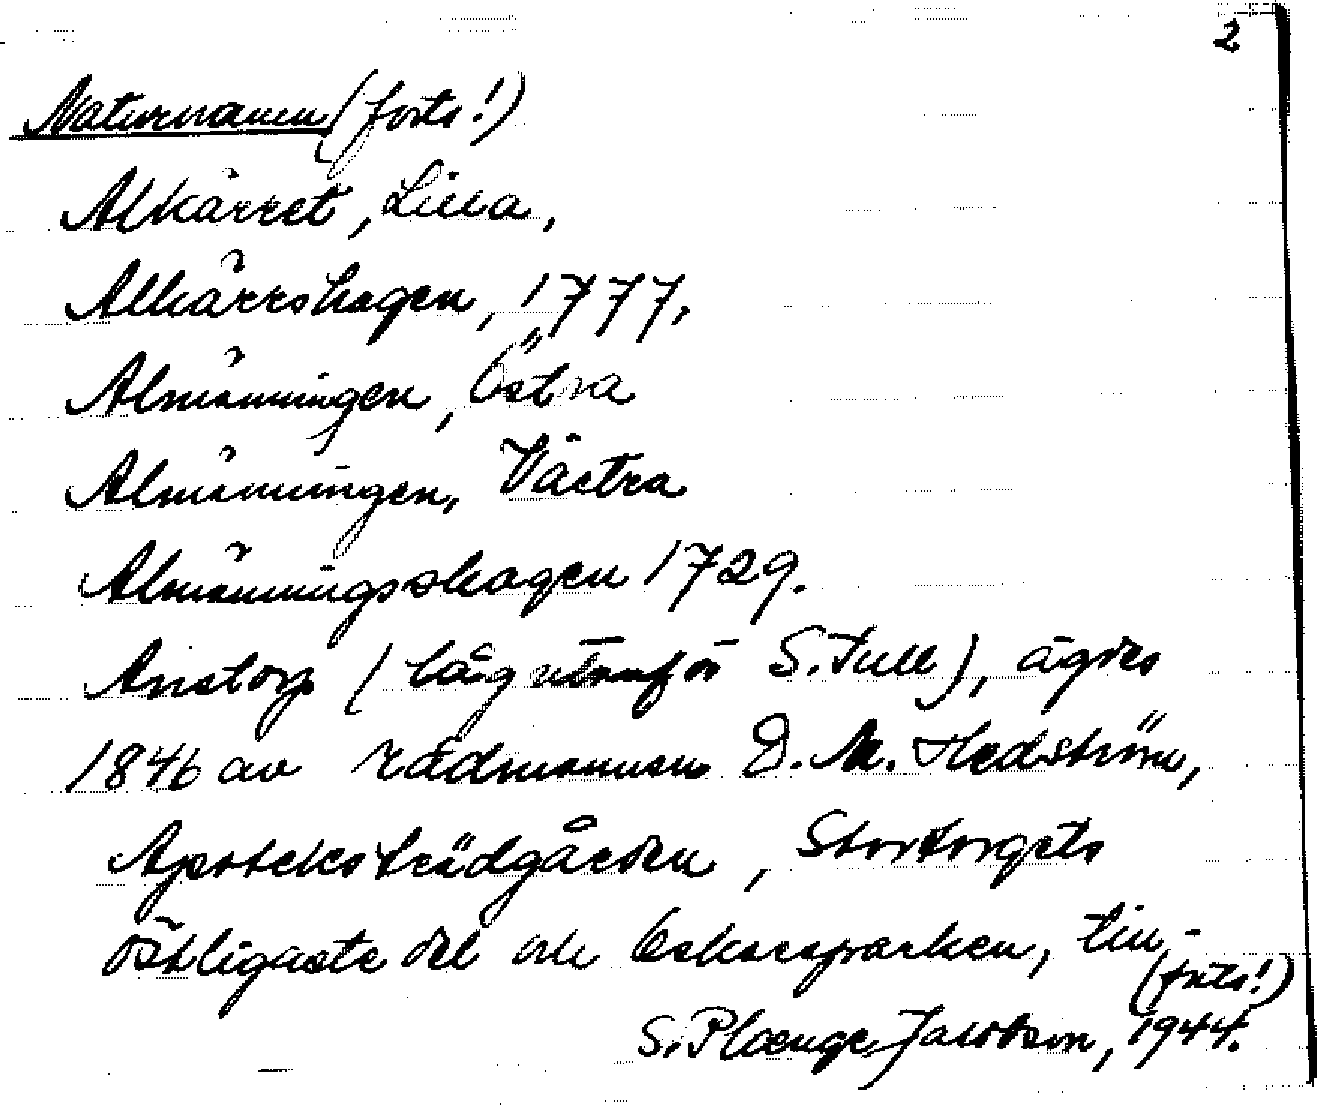 2
Naturnamn (forts!)
Alkärret, Lilla,
Alkärrshagen, 1777,
Almänningen, Östra
Almänningen, Västra
Almänningsskagen 1729.
Anstorp (låg utanför S. Tull), ägdes
1846 av rådmannen D. M. Hedström,
Apoteksträdgården, Stortorgets
östligaste del och Oskarsparken, till-
(forts!)
S. Plænge Jacobson, 1944.